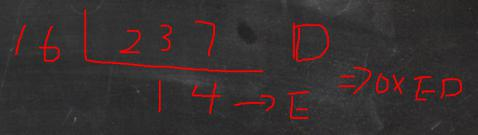 16 237 D
14 → E ⇒ 0xED